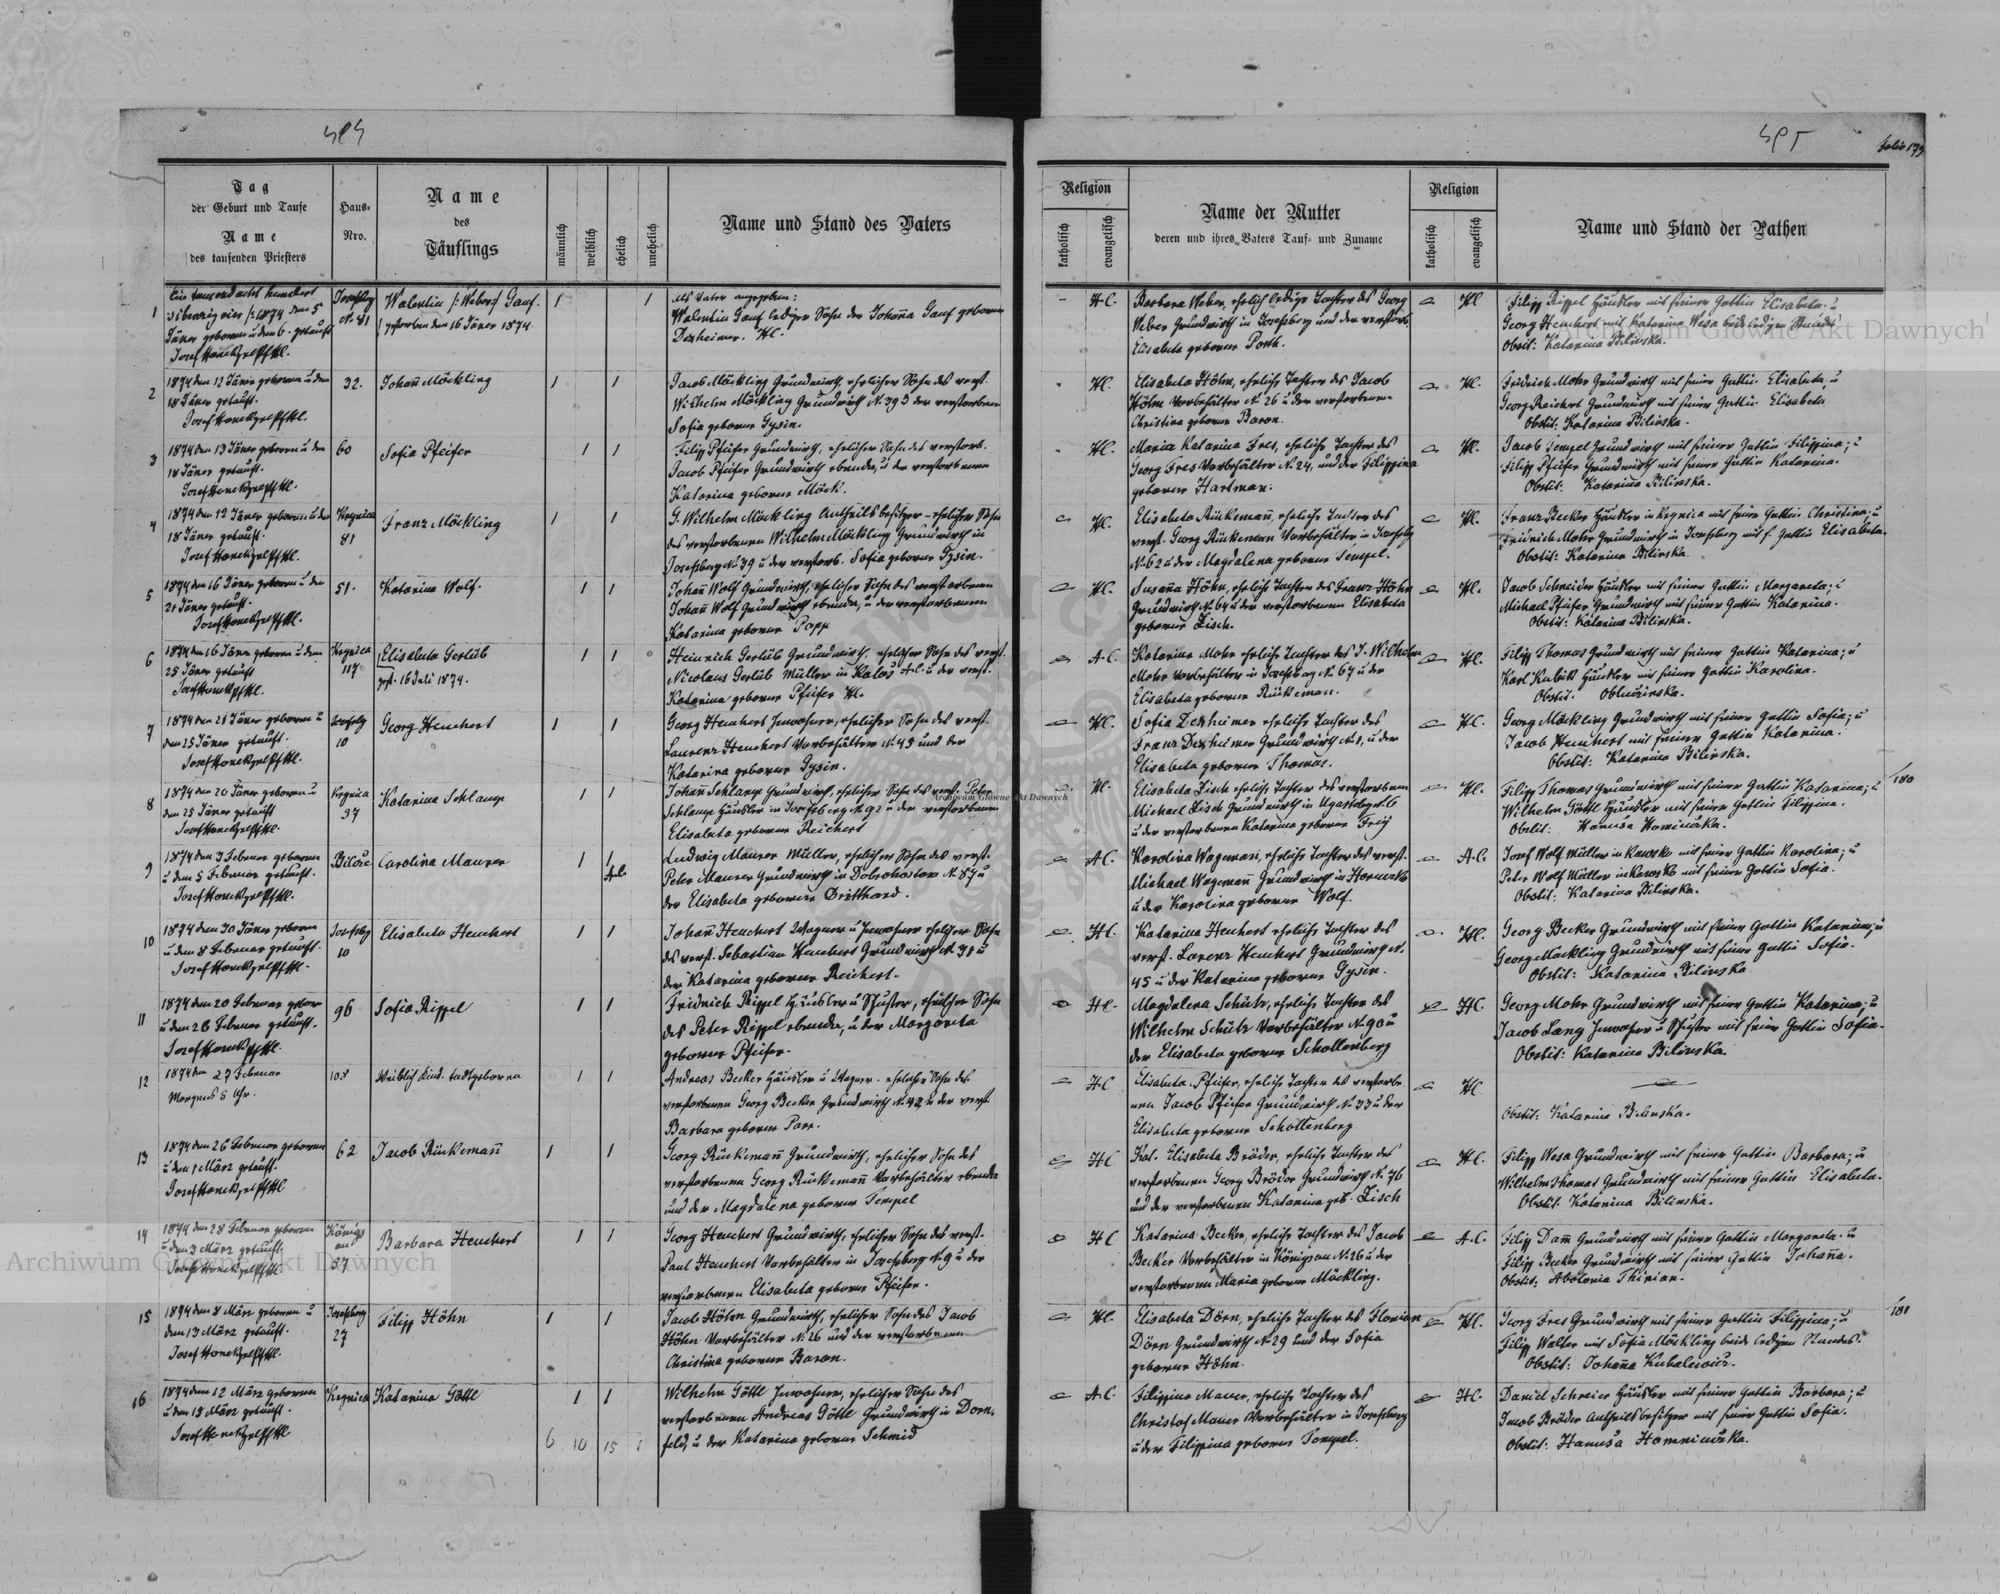 Folio 179
Tag
der Geburt und Taufe
Name
des taufenden Priesters
Haus-
Nro.
Name
des
Täuflings
männlich
weiblich
ehelich
unehelich
Name und Stand des Vaters
Religion
katholisch
evangelisch
Name der Mutter
deren und ihres Vaters Tauf- und Zuname
Religion
katholisch
evangelisch
Name und Stand der Pathen
1
Ein tausend acht hundert
siebenzig vier /: 1874 den 5
Jäner geboren u den 6. getauft
Josefsbg
N. 81
Walentin /: Weber :/ Gauf.
gestorben den 16 Jäner 1874
1
1
Als Vater angegeben:
Walentin Gauf lediger Sohn der Johanna Gauf geborene
Dexheimer. HC.
H.C.
Barbara Weber, ehelich ledige Tochter des Georg
Weber Grundwirth in Josefsberg und der verstorb.
Elisabeta geborene Porth.
HC.
Filipp Rippel Häusler mit seiner Gattin Elisabeta u
Georg Heuchert mit Katarina Wesa beide ledigen Standes
Obstit: Katarina Bilinska.
2
1874 den 12 Jäner geboren u den
18 Jäner getauft.
32.
Johann Möckling
1
1
Jacob Möckling Grundwirth, ehelicher Sohn des verst.
Wilhelm Möckling Grundwirth N. 39 u der verstorbenen
Sofia geborene Gysin.
HC.
Elisabeta Höhn, eheliche Tochter des Jacob
Höhn Vorbehälter N. 26 u der verstorbenen
Christina geborene Baron.
HC.
Fridrich Mohr Grundwirth mit seiner Gattin Elisabeta, u
Georg Reichert Grundwirth mit seiner Gattin Elisabeta
Obstit: Katarina Bilinska.
3
1874 den 13 Jäner geboren u den
18 Jäner getauft.
60
Sofia Pfeifer
1
1
Filip Pfeifer Grundwirth, ehelicher Sohn des verstorb.
Jacob Pfeifer Grundwirth ebenda, u der verstorbenen
Katarina geborene Möck.
HC.
Maria Katarina Fres, eheliche Tochter des
Georg Fres Vorbehälter N. 24, und der Filippina
geborene Hartman.
HC.
Jacob Tempel Grundwirth mit seiner Gattin Filippina; u
Filipp Pfeifer Grundwirth mit seiner Gattin Katarina.
Obstit: Katarina Bilinska.
4
1874 den 12 Jäner geboren u den
18 Jäner getauft.
Krynica
81
Franz Möckling
1
1
G. Wilhelm Möckling Antheilsbesitzer - ehelicher Sohn
des verstorbenen Wilhelm Möckling Grundwirth in
Josefsberg N. 39 u der verstorb. Sofia geborene Gysin.
HC.
Elisabeta Rückemann, eheliche Tochter des
verst. Georg Rückeman Vorbehälter in Josefsbg
N. 62 u der Magdalena geborene Tempel.
HC.
Franz Becker Häusler in Krynica mit seiner Gattin Christina; u
Fridrich Mohr Grundwirth in Josefsberg mit s. Gattin Elisabeta.
Obstit: Katarina Bilinska
5
1874 den 16 Jäner geboren u den
21 Jäner getauft.
51.
Katarina Wolf.
1
1
Johann Wolf Grundwirth, ehelicher Sohn des verstorbenen
Johann Wolf Grundwirth ebenda, u der verstorbenen
Katarina geborene Popp
HC.
Susanna Höhn, eheliche Tochter des Franz Höhn
Grundwirth N. 64 u der verstorbenen Elisabeta
geborene Zisch.
HC.
Jacob Schneider Häusler mit seiner Gattin Margareta; u
Michael Pfeifer Grundwirth mit seiner Gattin Katarina.
Obstit: Katarina Bilinska.
6
1874 den 16 Jäner geboren u den
25 Jäner getauft
Krynica
117
Elisabeta Gerlüb
gest. 16 Juli 1874.
1
1
Heinrich Gerlüb Grundwirth, ehelicher Sohn des verst.
Nicolaus Gerlüb Müller in Katos A.C. u der verst.
Katarina geborene Pfeifer HC.
A.C.
Katarina Mohr eheliche Tochter des J. Wilhelm
Mohr Vorbehälter in Josefsbg N. 67 u der
Elisabeta geborene Rückeman.
HC.
Filipp Thomas Grundwirth mit seiner Gattin Katarina; u
Karl Kubik Häusler mit seiner Gattin Karolina.
7
1874 den 21 Jäner geboren u
den 25 Jäner getauft.
Josefsbg
10
Georg Heuchert
1
1
Georg Heuchert Inwohner, ehelicher Sohn des verst.
Laurenz Heuchert Vorbehälter N. 45 und der
Katarina geborene Gysin.
HC.
Sofia Dexheimer eheliche Tochter des
Franz Dexheimer Grundwirth N. 1, u der
Elisabeta geborene Thomas.
HC.
Georg Möckling Grundwirth mit seiner Gattin Sofia; u
Jacob Heuchert mit seiner Gattin Katarina.
Obstit: Katarina Bilinska.
8
1874 den 20 Jäner geboren u
den 25 Jäner getauft
Krynica
37
Katarina Schlamp
1
1
Johann Schlamp Grundwirth, ehelicher Sohn des verst. Peter
Schlamp Häusler in Josefsberg N. 92 u der verstorbenen
Elisabeta geborene Reichert
HC.
Elisabeta Zisch eheliche Tochter des verstorbenen
Michael Zisch Grundwirth in Ugartsbg N. 6
u der verstorbenen Katarina geborene Frey
HC.
Filipp Thomas Grundwirth mit seiner Gattin Katarina; u
Wilhelm Göttl Häusler mit seiner Gattin Filippina.
180
9
1874 den 3 Februar geboren
u den 5 Februar getauft.
Carolina Maurer
1
1
A.C.
Ludwig Maurer Müller, ehelicher Sohn des verst.
Peter Maurer Grundwirth in Dobrohostow N. 87 u
der Elisabeta geborene Dritthard.
A.C.
Karolina Wagemann, eheliche Tochter des verst.
Michael Wagemann Grundwirth in Horucko
u der Karolina geborene Wolf.
A.C.
Josef Wolf Müller in Kawsko mit seiner Gattin Karolina; u
Peter Wolf Müller in Kawsko mit seiner Gattin Sofia.
Obstit: Katarina Bilinska.
10
1874 den 30 Jäner geboren
u den 8 Februar getauft.
Josefsbg
10
Elisabeta Heuchert
1
1
Johann Heuchert Wagner u Inwohner ehelicher Sohn
des verst. Sebastian Heuchert Grundwirth N. 38 u
der Katarina geborene Reichert.
H.C.
Katarina Heuhert eheliche Tochter des
verst. Lorenz Heuchert Grundwirth N.
45 u der Katarina geborene Gysin.
HC.
Georg Becker Grundwirth mit seiner Gattin Katarina; u
Georg Mockling Grundwirth mit seiner Gattin Sofia.
Obstit: Katarina Bilinska
11
1874 den 20 Februar gebor
u den 26 Februar getauft.
96
Sofia Rippel
1
1
Fridrich Rippel Häusler u Schuster, ehelicher Sohn
des Peter Rippel ebenda, u der Margareta
geborene Pfeifer.
HC.
Magdalena Schütz, eheliche Tochter des
Wilhelm Schütz Vorbehälter N. 90 u
der Elisabeta geborene Schollenberg
HC.
Georg Mohr Grundwirth mit seiner Gattin Katarina; u
Jacob Lang Inwohner u Schuster mit seiner Gattin Sofia.
Obstit: Katarina Bilinska.
12
1874 den 27 Februar
Morgens 5 Uhr.
108
Weiblich Kind. todtgeboren
1
1
Andreas Becker Häusler u Wagner. ehelicher Sohn des
verstorbenen Georg Becker Grundwirth N. 42, u der verst.
Barbara geborene Parr.
HC
Elisabeta Pfeifer, eheliche Tochter des verstorbe
nen Jacob Pfeifer Grundwirth N. 33 u der
Elisabeta geborene Schollenberg
HC.
Obstit: Katarina Bilinska.
13
1874 den 26 Februar geboren
u den 1 März getauft.
62
Jacob Rückemann
1
1
Georg Rückemann Grundwirth, ehelicher Sohn des
verstorbenen Georg Rückemann Vorbehälter ebenda
und der Magdalena geborene Tempel
HC
Kat. Elisabeta Bröder, eheliche Tochter des
verstorbenen Georg Bröder Grundwirth N. 76
und der verstorbenen Katarina geb. Zisch
HC.
Filipp Wesa Grundwirth mit seiner Gattin Barbara; u
Wilhelm Thomas Grundwirth mit seiner Gattin Elisabeta.
Obstit: Katarina Bilinska.
14
1874 den 28 Februar geboren
u den 3 März getauft.
Königs
au
57
Barbara Heuchert
1
1
Georg Heuchert Grundwirth, ehelicher Sohn des verst.
Paul Heuchert Vorbehälter in Josefsberg N. 9 u der
verstorbenen Elisabeta geborene Pfeifer.
HC
Katarina Becker, eheliche Tochter des Jacob
Becker Vorbehälter in Königsau N. 26 u der
verstorbenen Maria geborene Möckling.
A.C.
Filip Damm Grundwirth mit seiner Gattin Margareta. u
Filipp Becker Grundwirth mit seiner Gattin Johanna.
15
1874 den 8 März geboren u
den 13 März getauft.
Josefsberg
27
Filipp Höhn
1
1
Jacob Höhn Grundwirth, ehelicher Sohn des Jacob
Höhn Vorbehälter N. 26 und der verstorbenen
Christina geborene Baron.
HC.
Elisabeta Dörn, eheliche Tochter des Florian
Dörn Grundwirth N. 29 und der Sofia
geborene Höhn.
HC.
Georg Fres Grundwirth mit seiner Gattin Filippina; u
Filipp Walter mit Sofia Möckling beide ledigen Standes.
Obstit: Johanna Kubalewicz.
181
16
1874 den 12 März geboren
u den 18 März getauft.
Krynica
Katarina Göttl
1
1
Wilhelm Göttl Inwohner, ehelicher Sohn des
verstorbenen Andreas Göttl Grundwirth in Dorn-
feld, u der Katarina geborene Schmid
A.C.
Filippina Mauer, eheliche Tochter des
Christof Mauer Vorbehälter in Josefsberg
u der Filippina geborene Tempel.
HC.
Daniel Schreier Häusler mit seiner Gattin Barbara; u
Jacob Bröder Antheilsbesitzer mit seiner Gattin Sofia.
6 10 15 1
Archiwum Główne Akt Dawnych